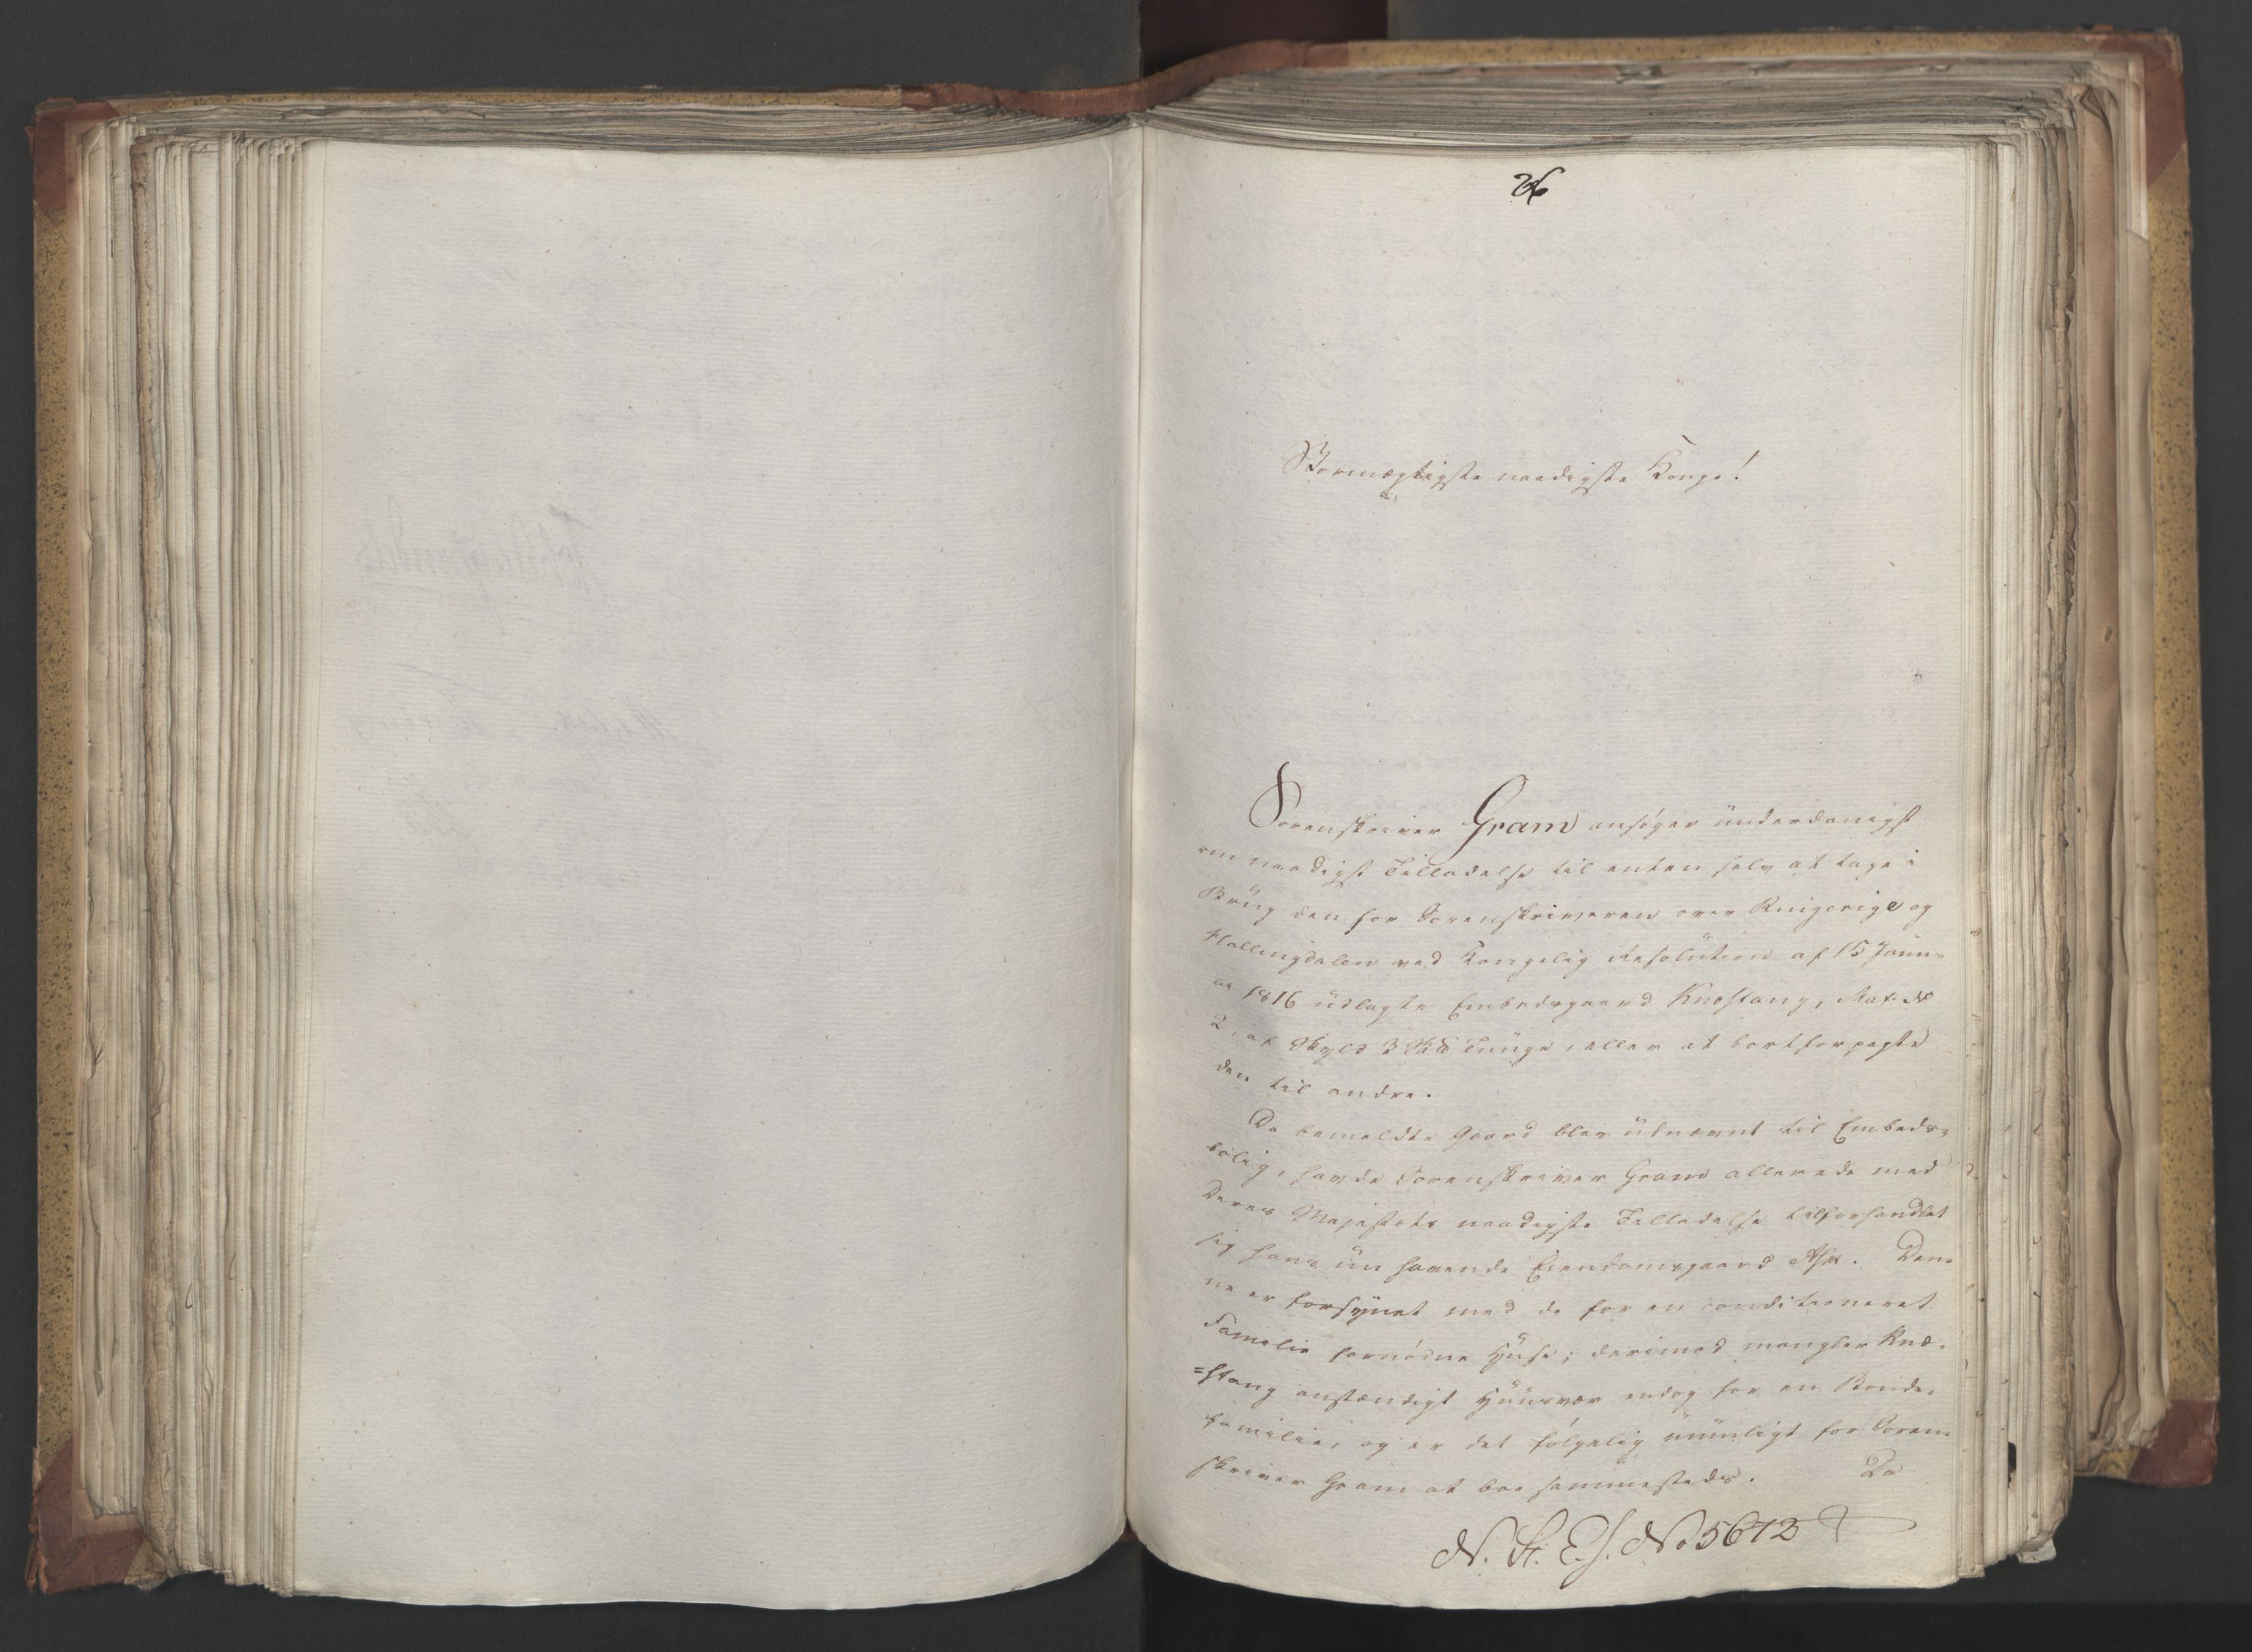 26
Stormægtigste naadigste Konge!
Sorenskriver Gram ansøger underdanigst
om naadigst Tilladelse til enten selv at tage i
Brug den for Sorenskriveren over Ringerige og
Hallingdalen ved Kongelig Resolution af 15 Janu-
ar 1816 udlagte Embedsgaard Knæstang, Mat. No
2, af Skyld 3 Skd Tunge, eller at bortforpagte
den til andre.
Da bemeldte Gaard blev udnævnt til Embeds-
bolig, havde Sorenskriver Gram allerede med
Deres Majestæts naadigste Tilladelse tilforhandlet
sig hans nu havende Eiendomsgaard Ask. Den-
ne er forsynet med de for en conditioneret
Familie fornødne Huse; derimod mangler Knæ-
=stang anstændigt Huusvær endog for en Bonde-
familie, og er det følgelig umuligt for Soren-
skriver Gram at boe sammesteds. Da
N. St. E. J. No 5672